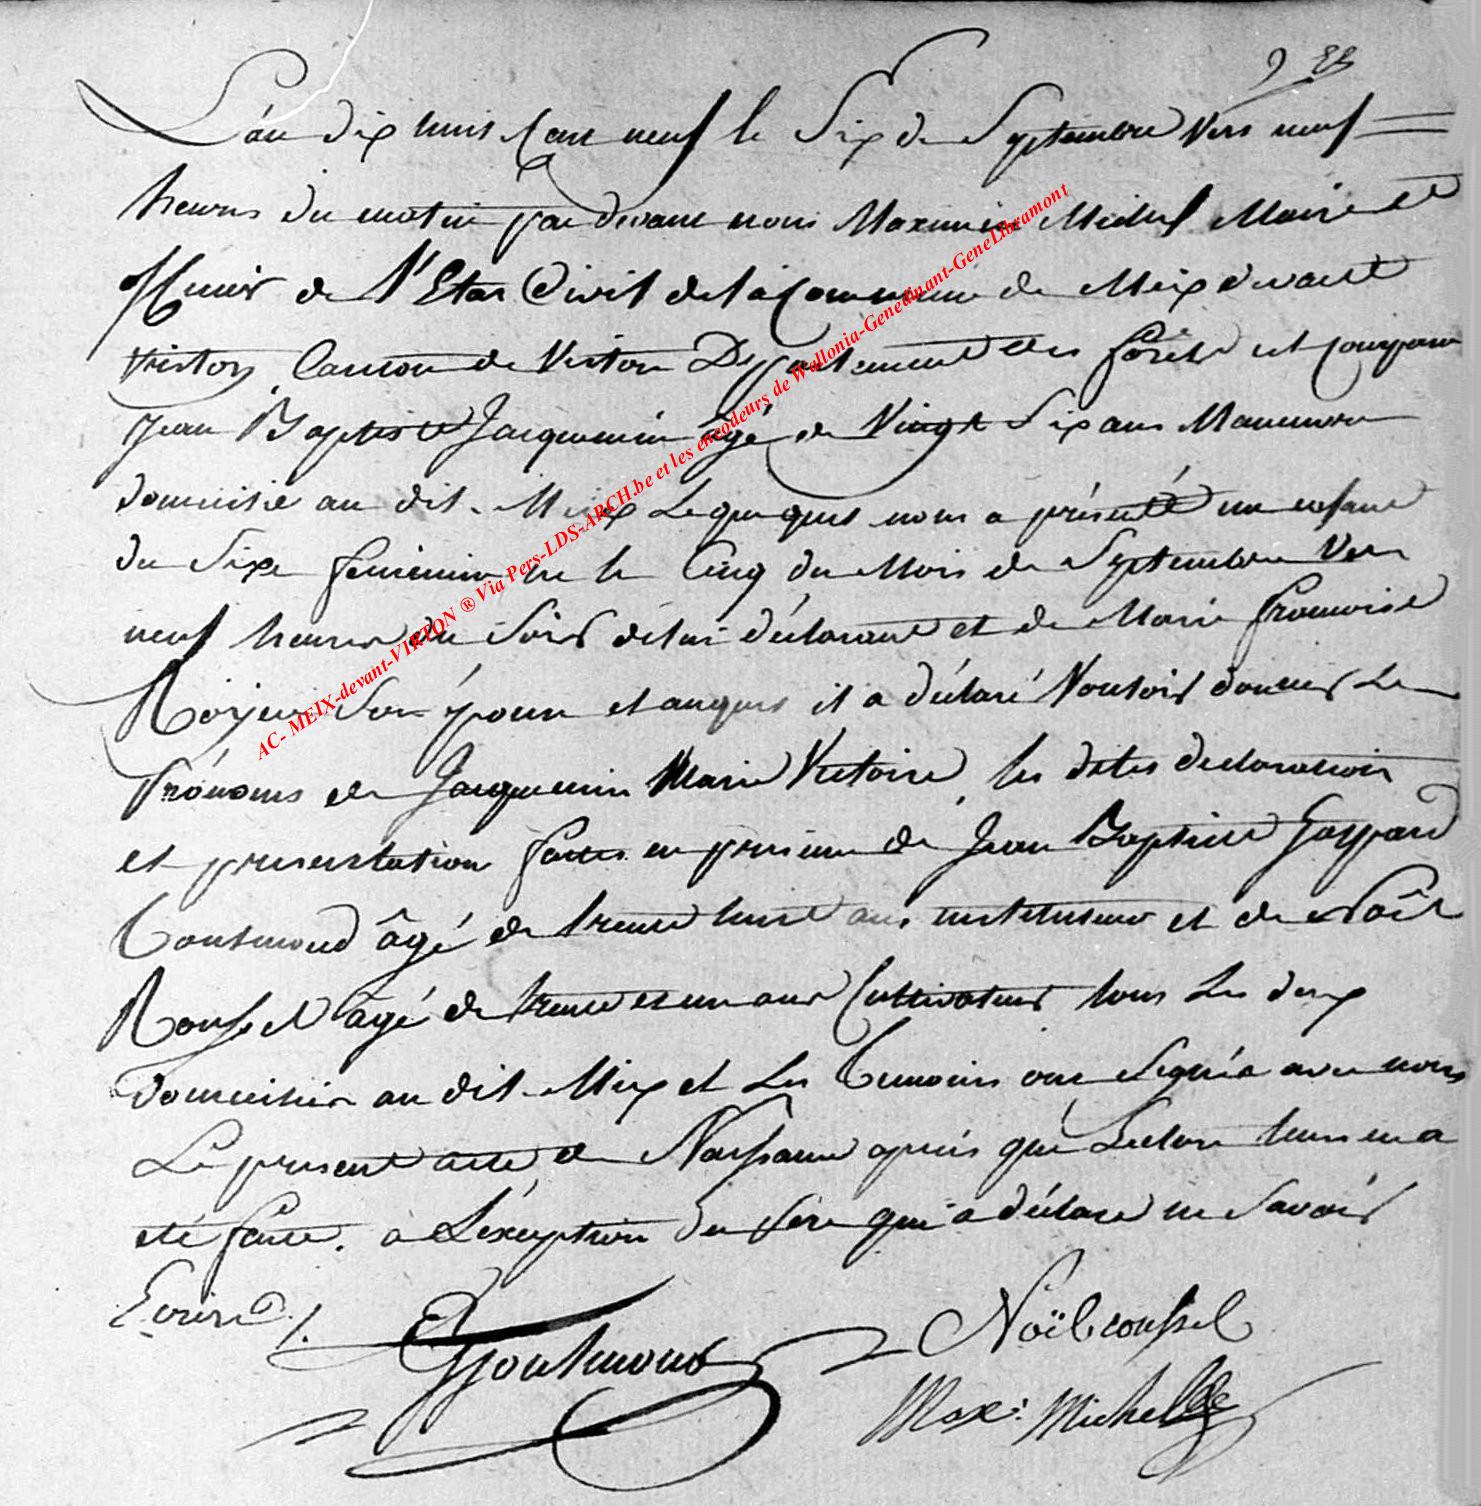 L'an dix huit cent neuf le Six de Septembre vers neuf
heures du matin par devant nous Maximin Michel Maire et
officier de l'Etat Civil de la Commune de Meix devant
virton Canton de Virton Departement des forêts est comparu
Jean Baptiste Jacquemin âgé de Vingt Six ans Manouvre
domicilié au dit Meix Lequel nous a présenté un enfant
du Sixe feminin né le Cinq du Mois de Septembre vers
neuf heures du Soir de lui déclarant et de Marie francoise
son épouse et auquel il a déclaré Vouloir donner Les
Prénoms de Jacquemin Marie Victoire, les dites declaration
et presentation faites en presence de Jean Baptiste Gaspard
Goutmond âgé de trente huit ans instituteur et de Noël
Roussel âgé de trente et un ans Cultivateur tous Les deux
domiciliés au dit Meix et Les temoins ont Signés avec nous
Le present acte de Naissance après que Lecture leurs en a
eté faite. à L'exception du Pere qui a déclaré ne Savoir
Ecrire ./.
Goutmond Noël roussel
Max: Michel
AC- MEIX-devant-VIRTON ® Via Pers-LDS-ARCH.be et les encodeurs de Wallonia-Genedinant-GeneLibramont